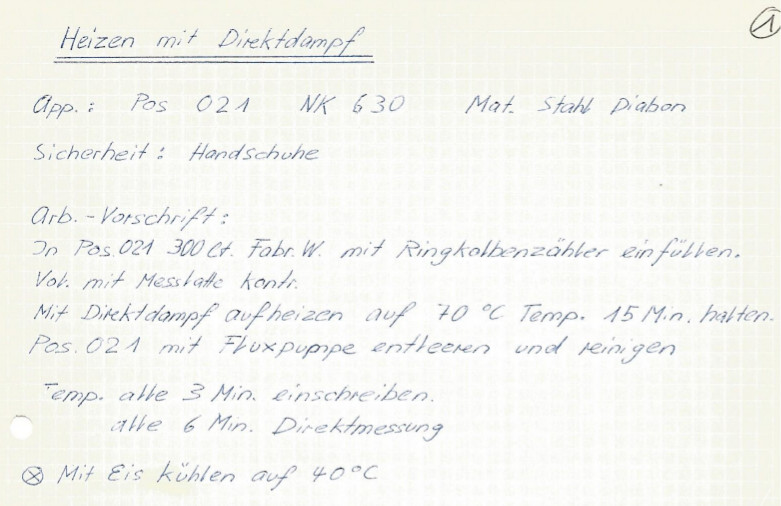 1
Heizen mit Direktdampf
App.: Pos 021 NK 630 Mat. Stahl Diabon
Sicherheit: Handschuhe
Arb.-Vorschrift:
In Pos.021 300 Lt. Fabr. W. mit Ringkolbenzähler einfüllen.
Vol. mit Messlatte kontr.
Mit Direktdampf aufheizen auf 70 °C Temp. 15 Min. halten.
Pos. 021 mit Fluxpumpe entleeren und reinigen
Temp. alle 3 Min. einschreiben.
alle 6 Min. Direktmessung
⊗ Mit Eis kühlen auf 40°C